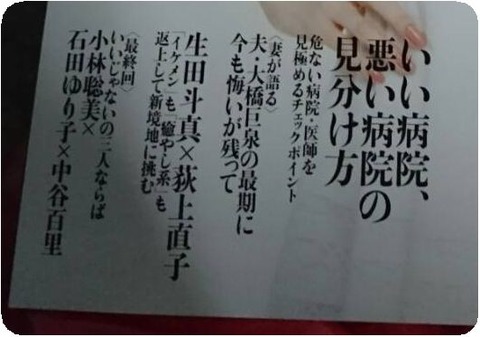 いい病院、
悪い病院の
見分け方
危ない病院・医師を
見極めるチェックポイント
〈妻が語る〉
夫・大橋巨泉の最期に
今も悔いが残って
生田斗真×荻上直子
「イケメン」も「癒やし系」も
返上して新境地に挑む
〈最終回〉
いいじゃないの三人ならば
小林聡美×
石田ゆり子×中谷百里